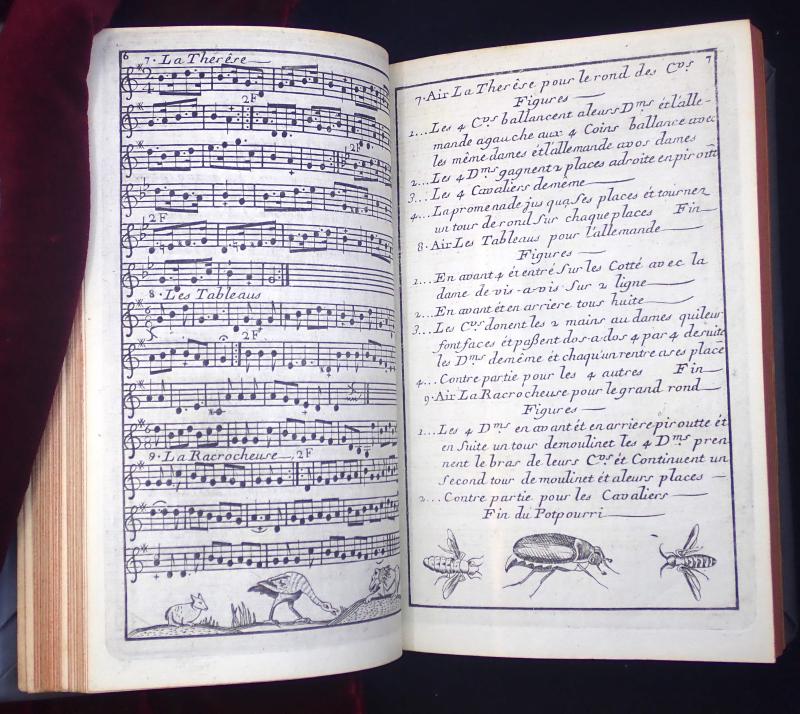 6
7. La Therêse
2F
2F
2F
8. Les Tableaus
2F
9. La Racrocheuse
2F
7
7. Air La Therêse pour le rond des C.vs
Figures
1... Les 4 C.vs ballancent aleurs D.ms ét l'alle-
mande agauche aux 4 Coins ballance avec
les même dames ét l'allemande avos dames
2... Les 4 D.ms gagnent 2 places adroite en piroütt
3... Les 4 Cavaliers demême
4... La promenade jus qua ses places ét tournez
un tour de rond Sur chaque places Fin
8. Air Les Tableaus pour l'allemande
Figures
1... En avant 4 ét entré Sur les Cotté avec la
dame de vis-a-vis Sur 2 ligne
2... En avant ét en arriere tous huite
3... Les C.vs donent les 2 mains au dames qui leur
font faces ét paßent dos-a-dos 4 par 4 de suite
les D.ms demême ét chaqu'un rentre ases place
4... Contre partie pour les 4 autres Fin
9. Air La Racrocheuse pour le grand rond
Figures
1... Les 4 D.ms en avant ét en arriere piroutte ét
en Suite un tour demoulinet les 4 D.ms pren
nent le bras de leurs C.vs ét Continuent un
Second tour de moulinet ét aleurs places
2... Contre partie pour les Cavaliers
Fin du Potpourri